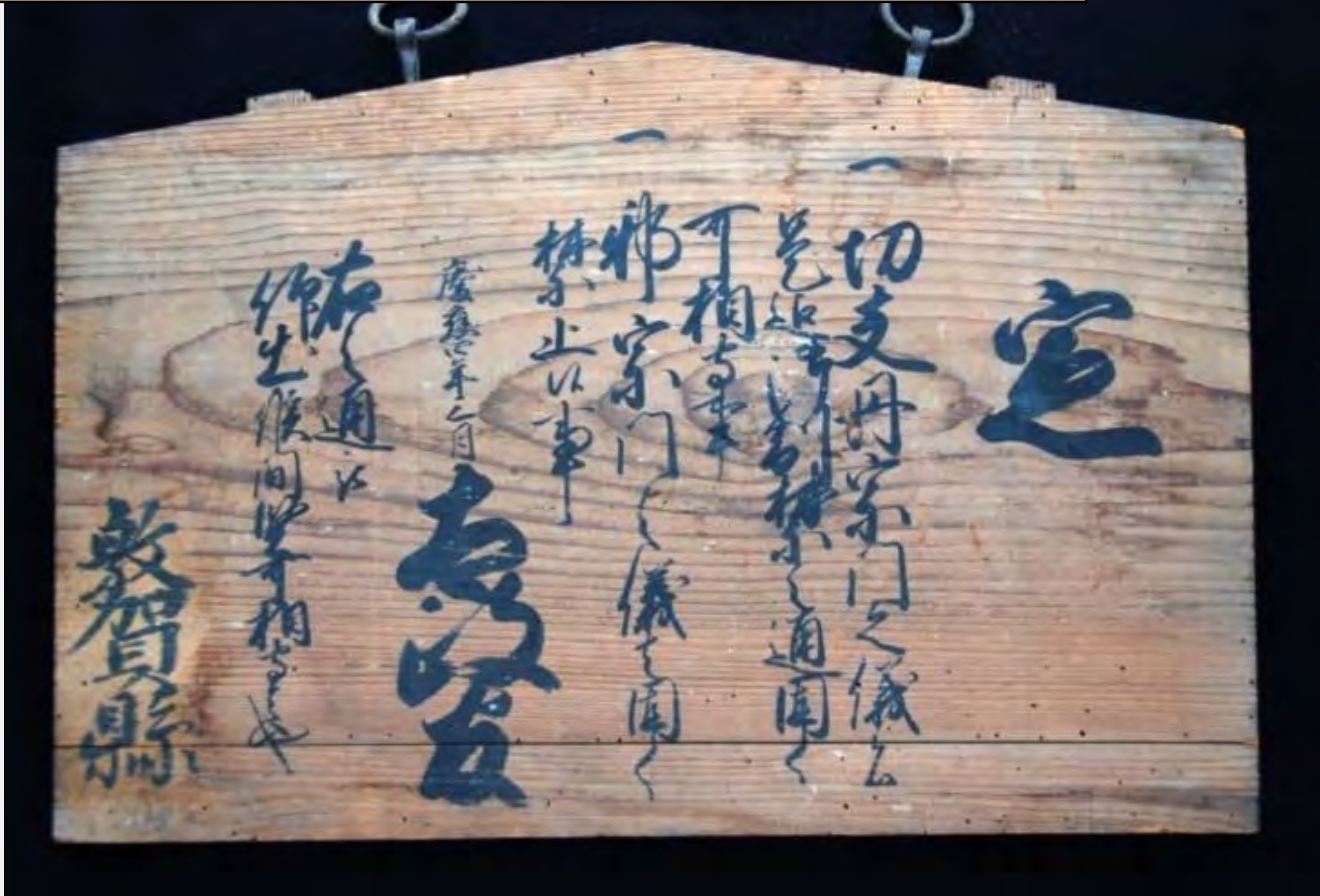 定
一 切支丹宗門之儀者
是迄御制禁之通固く
可相守事
一 邪宗門之儀者固く
禁止候事
慶應四年三月 太政官
右之通被
仰出候間堅可相守者也
敦賀縣